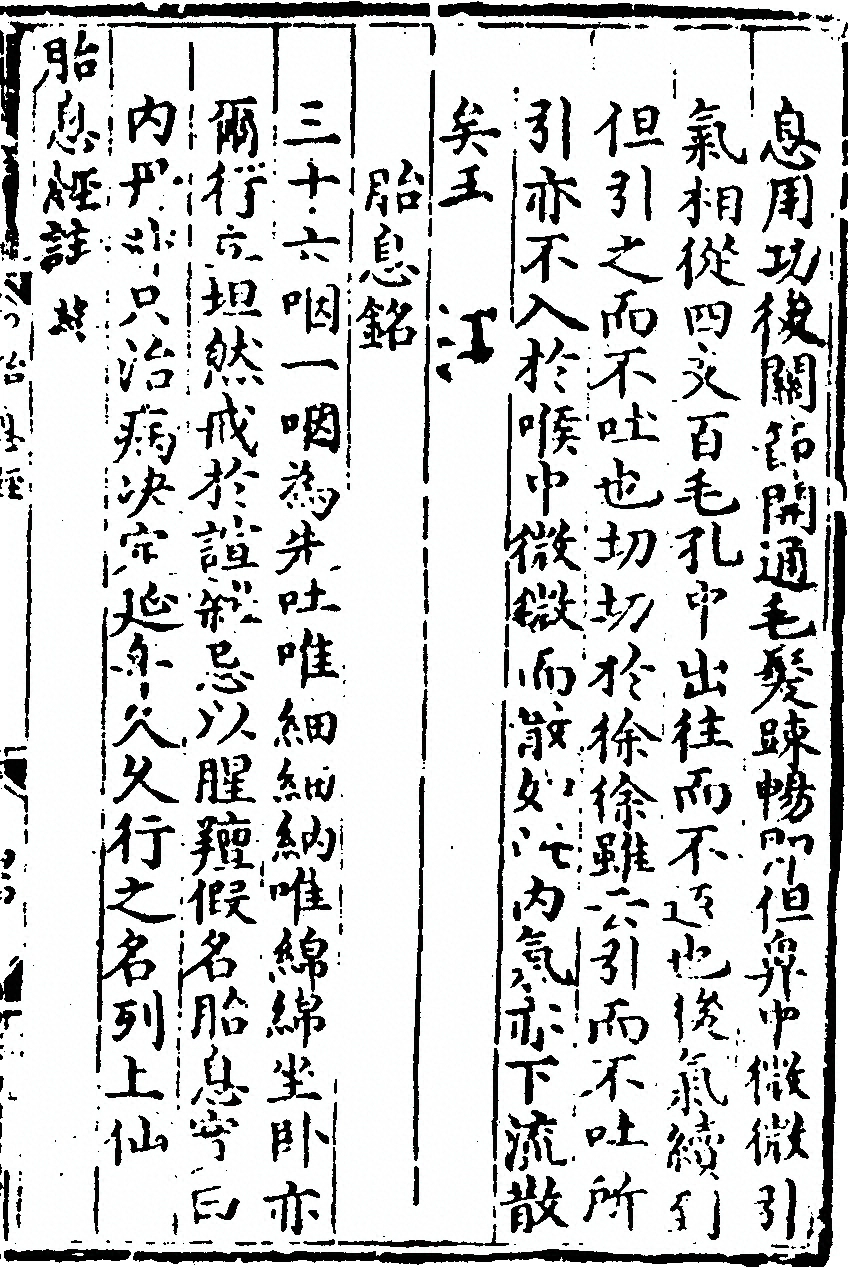 息用功後關節開通毛髮踈暢即但鼻中微微引
氣相從四支百毛孔中出往而不返也後氣續到
但引之而不吐也切切於徐徐雖云引而不吐所
引亦不入於喉中微微而散如此內氣亦下流散
矣王 江
胎息銘
三十六咽一咽為先吐唯細細納唯綿綿坐卧亦
爾行立坦然戒於諠雜忌以腥羶假名胎息實曰
內丹非只治病决定延年久久行之名列上仙
胎息經註 終